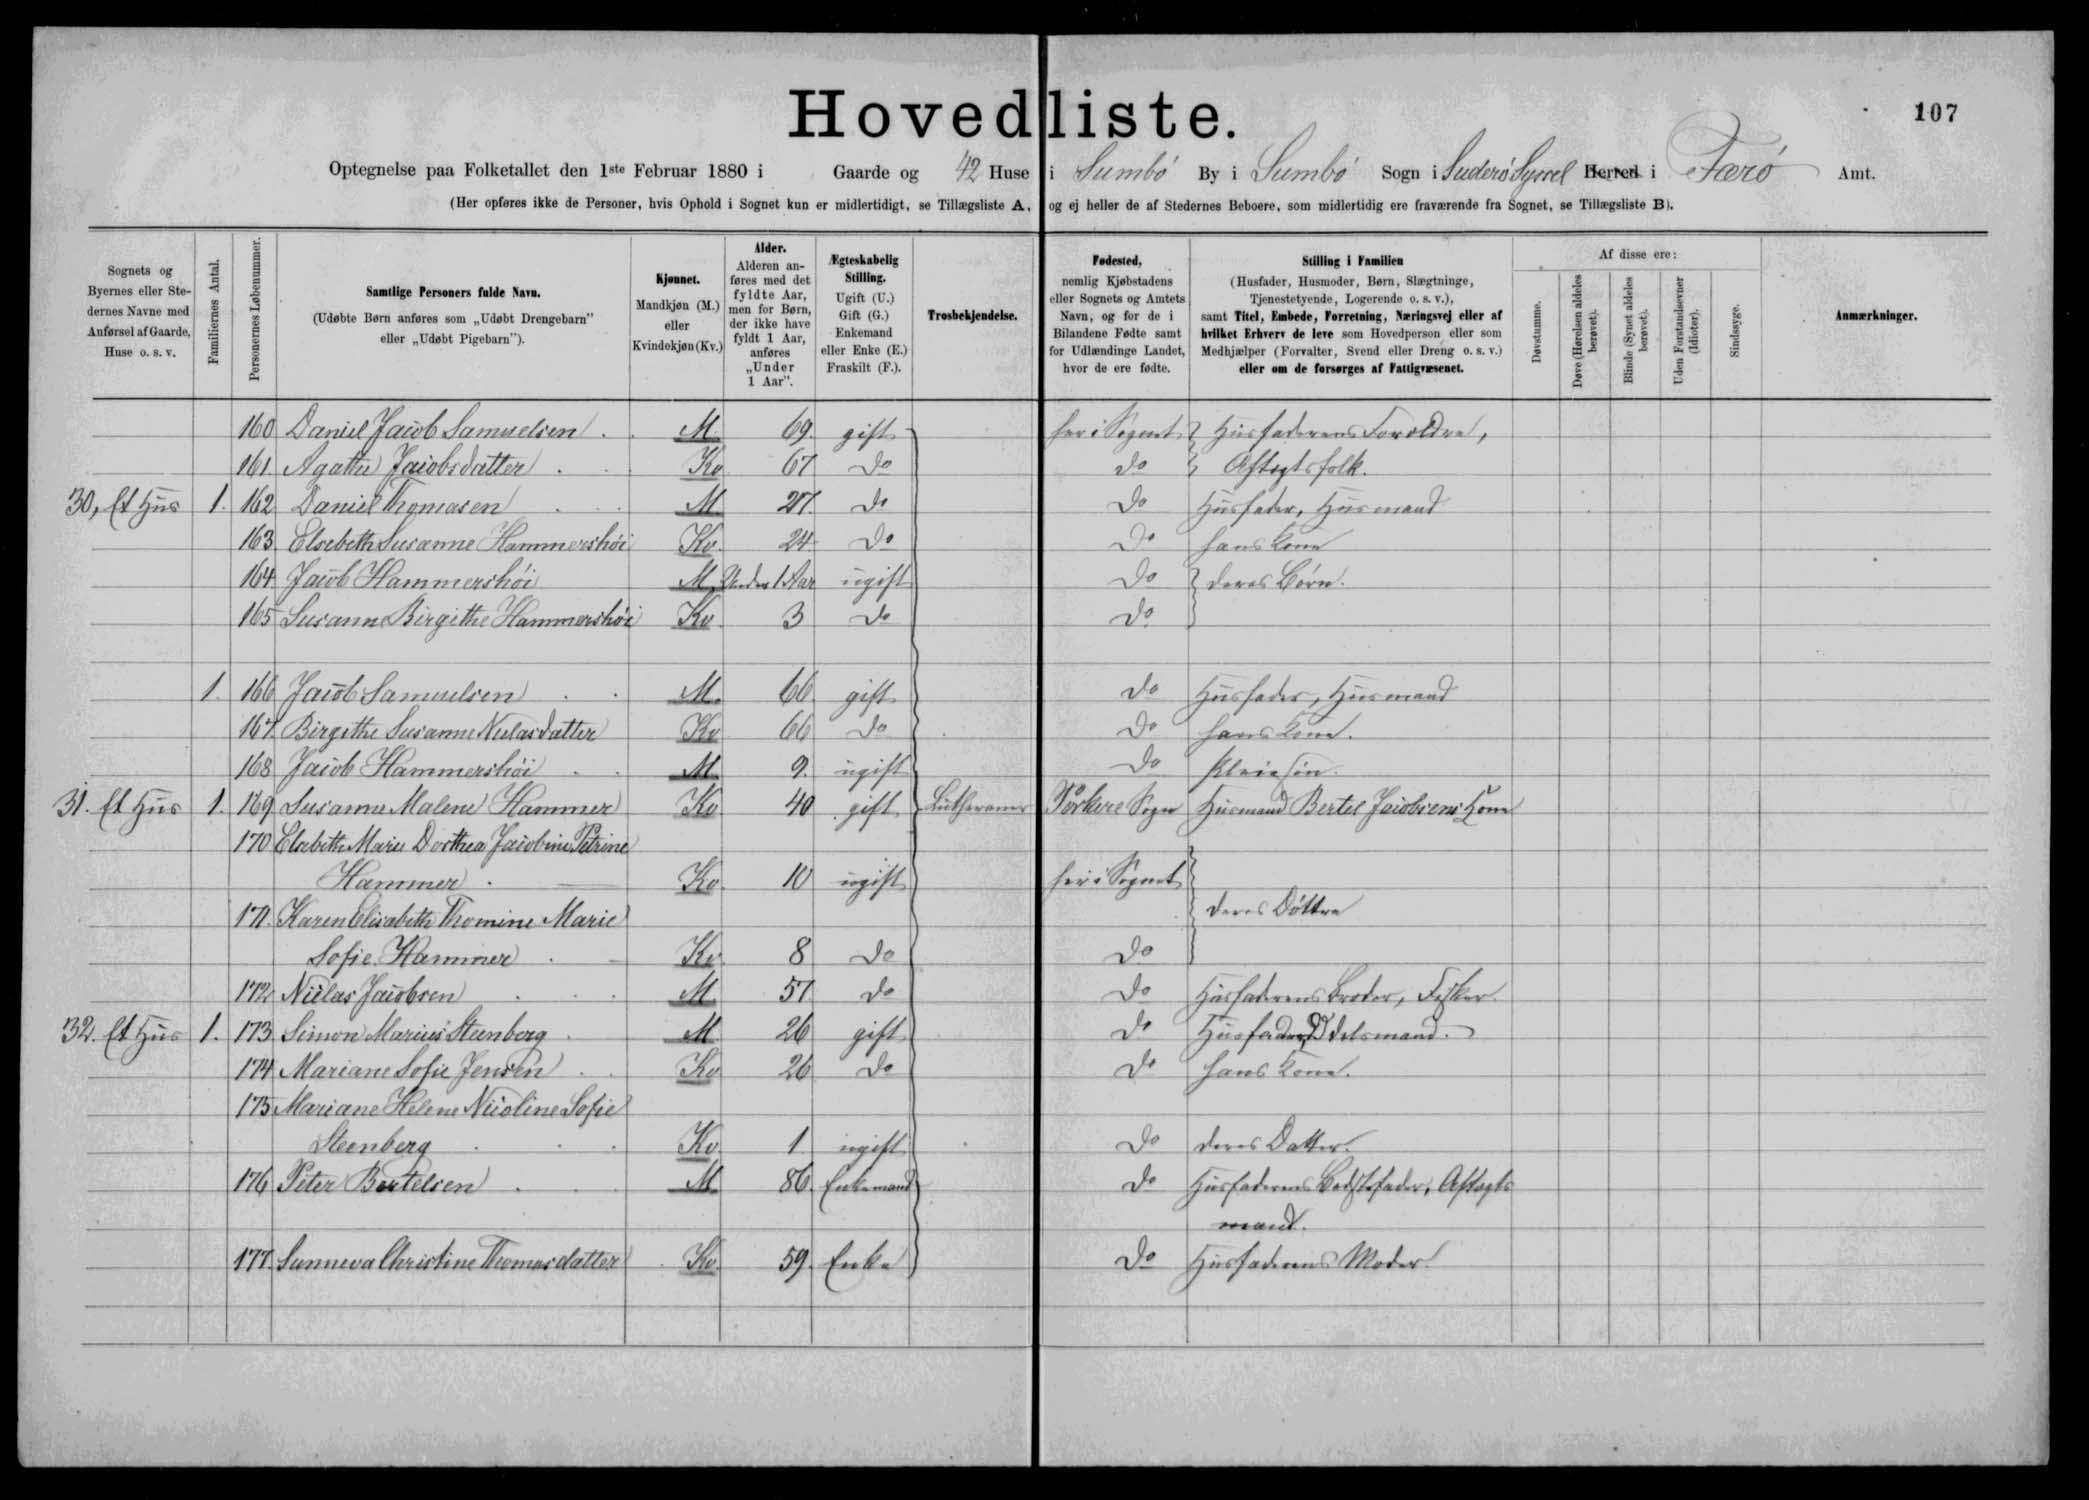 107
Hovedliste.
Optegnelse paa Folketallet den 1ste Februar 1880 i Gaarde og 42 Huse i Sumbö By i Sumbö Sogn i Suderö Syssel Herred i Færö Amt.
(Her opføres ikke de Personer, hvis Ophold i Sognet kun er midlertidigt, se Tillægsliste A, og ej heller de af Stedernes Beboere, som midlertidig ere fraværende fra Sognet, se Tillægsliste B).
Sognets og Byernes eller Stedernes Navne med Anførsel af Gaarde, Huse o. s. v.
Familiernes Antal.
Personernes Løbenummer.
Samtlige Personers fulde Navn.
(Udøbte Børn anføres som „Udøbt Drengebarn" eller „Udøbt Pigebarn").
Kjønnet.
Mandkjøn (M.) eller Kvindekjøn (Kv.)
Alder.
Alderen anføres med det fyldte Aar, men for Børn, der ikke have fyldt 1 Aar, anføres „Under 1 Aar".
Ægteskabelig Stilling.
Ugift (U.) Gift (G.) Enkemand eller Enke (E.) Fraskilt (F.).
Trosbekjendelse.
Fødested,
nemlig Kjøbstadens eller Sognets og Amtets Navn, og for de i Bilandene Fødte samt for Udlændinge Landet, hvor de ere fødte.
Stilling i Familien
(Husfader, Husmoder, Børn, Slægtninge, Tjenestetyende, Logerende o. s. v.),
samt Titel, Embede, Forretning, Næringsvej eller af hvilket Erhverv de leve som Hovedperson eller som Medhjælper (Forvalter, Svend eller Dreng o. s. v.) eller om de forsørges af Fattigvæsenet.
Af disse ere:
Døvstumme.
Døve (Hørelsen aldeles berøvet).
Blinde (Synet aldeles berøvet).
Uden Forstandsevner (Idioter).
Sindssyge.
Anmærkninger.
160 Daniel Jacob Samuelsen M. 69 gift her i Sognet Husfaderens Forældre,
161 Agathe Jacobsdatter Kv 67 do do Aftægtsfolk.
30, Et Hus 1. 162 Daniel Thomasen M 27 do do Husfader, Husmand
163 Elsebeth Susanne Hammershöi Kv. 24 do do hans Kone
164 Jacob Hammershöi M Under 1 Aar ugift do deres Börn.
165 Susanne Birgithe Hammershöi Kv 3 do do
1. 166 Jacob Samuelsen M. 66 gift do Husfader, Husmand
167 Birgithe Susanne Niclasdatter Kv 66 do do hans Kone.
168 Jacob Hammershöi M 9. ugift do Pleiesön.
31. Et Hus 1. 169 Susanne Malene Hammer Kv 40 gift Lutheraner Porkere Sogn Husmand Bertel Jacobsens Kone
170 Elsebeth Marie Dorthea Jacobine Petrine
Hammer Kv. 10 ugift her i Sognet
171. Karen Elisabeth Thomine Marie deres Döttre
Sofie Hammer Kv. 8 do do
172 Niclas Jacobsen M 57 do do Husfaderens Broder, Fisker.
32. Et Hus 1. 173 Simon Marius Steenberg M 26 gift do Husfader, Odelsmand.
174 Mariane Sofie Jensen Kv 26 do do hans Kone.
175 Mariane Helene Nicoline Sofie
Steenberg Kv. 1 ugift do deres Datter.
176 Peter Bertelsen M 86 Enkemand do Husfaderens Bedstefader, Aftægts
mand.
177. Sunneva Christine Thomasdatter Kv 59. Enke do Husfaderens Moder.